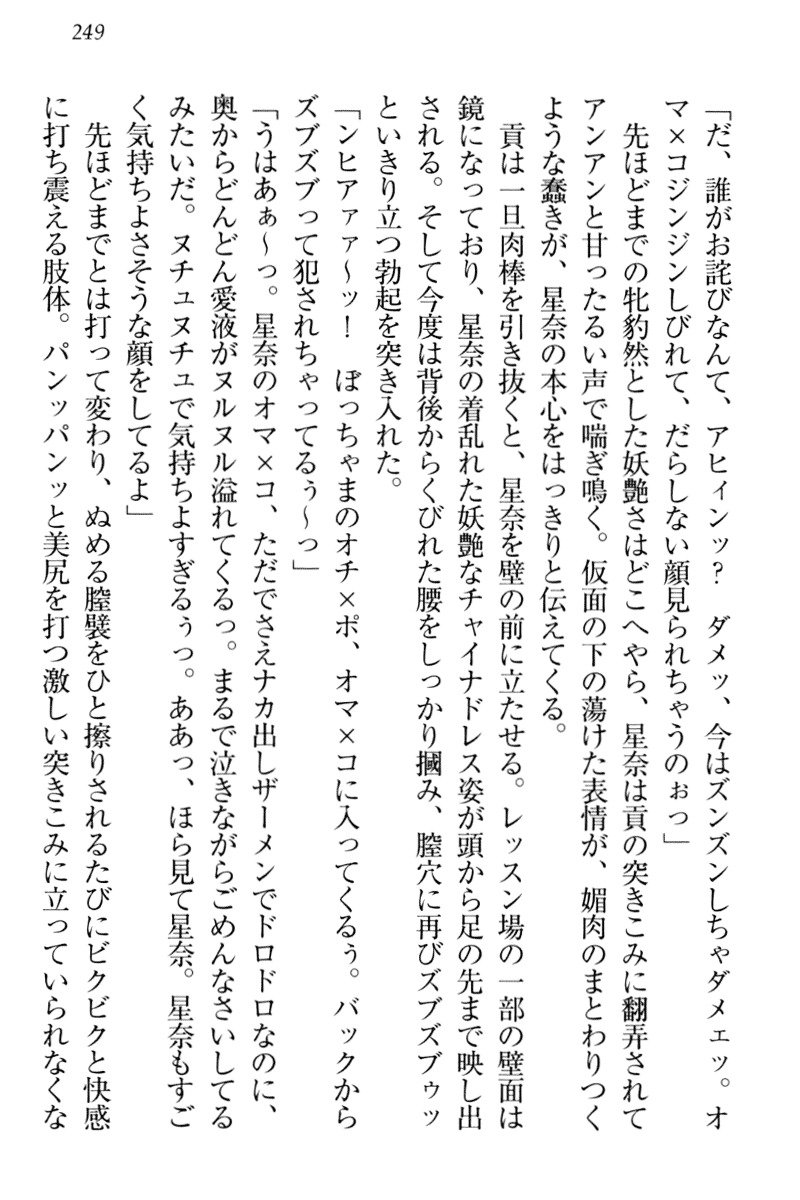 249
「だ、誰がお詫びなんて、アヒィンッ？　ダメッ、今はズンズンしちゃダメェッ。オ
マ×コジンジンしびれて、だらしない顔見られちゃうのぉっ」
　先ほどまでの牝豹然とした妖艶さはどこへやら、星奈は貢の突きこみに翻弄されて
アンアンと甘ったるい声で喘ぎ鳴く。仮面の下の蕩けた表情が、媚肉のまとわりつく
ような蠢きが、星奈の本心をはっきりと伝えてくる。
　貢は一旦肉棒を引き抜くと、星奈を壁の前に立たせる。レッスン場の一部の壁面は
鏡になっており、星奈の着乱れた妖艶なチャイナドレス姿が頭から足の先まで映し出
される。そして今度は背後からくびれた腰をしっかり摑み、膣穴に再びズブズブゥッ
といきり立つ勃起を突き入れた。
「ンヒアァァ～ッ！　ぼっちゃまのオチ×ポ、オマ×コに入ってくるぅ。バックから
ズブズブって犯されちゃってるぅ～っ」
「うはあぁ～っ。星奈のオマ×コ、ただでさえナカ出しザーメンでドロドロなのに、
奥からどんどん愛液がヌルヌル溢れてくるっ。まるで泣きながらごめんなさいしてる
みたいだ。ヌチュヌチュで気持ちよすぎるぅっ。ああっ、ほら見て星奈。星奈もすご
く気持ちよさそうな顔をしてるよ」
　先ほどまでとは打って変わり、ぬめる膣襞をひと擦りされるたびにビクビクと快感
に打ち震える肢体。パンッパンッと美尻を打つ激しい突きこみに立っていられなくな